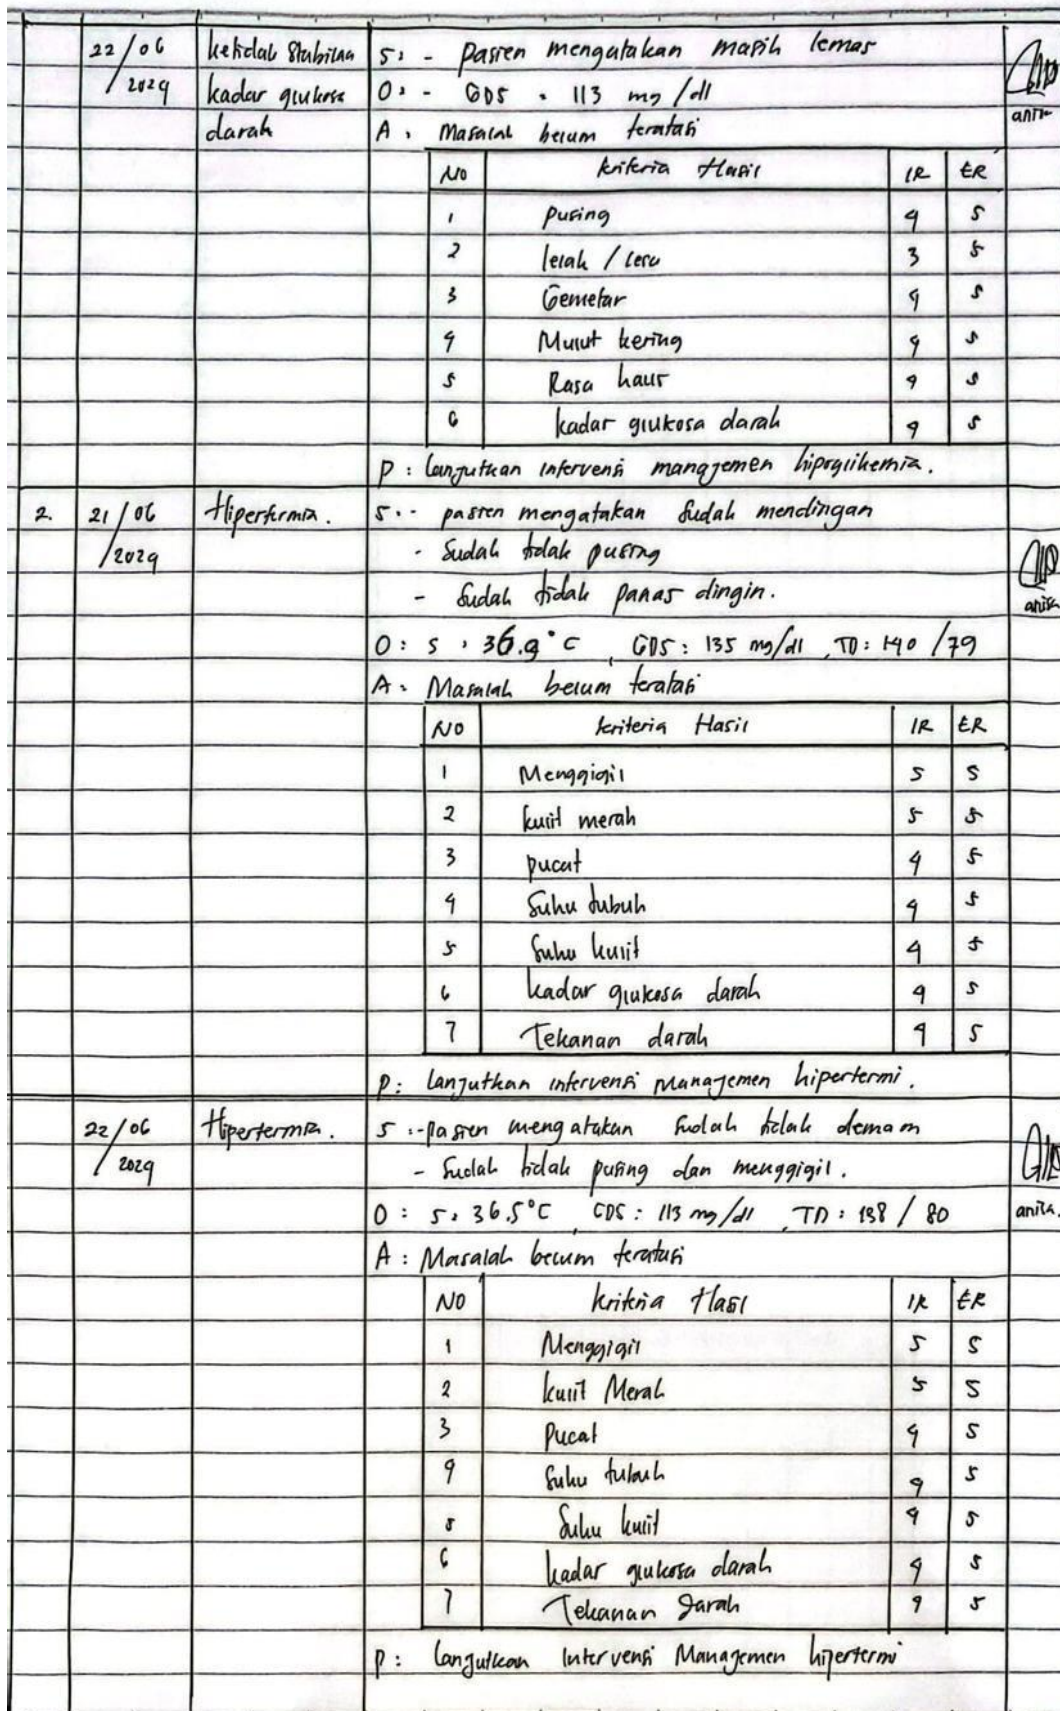 22/06/2024 ketidak stabilan kadar glukosa darah
S: - pasien mengatakan masih lemas
O: - GDS : 113 mg/dl
A: Masalah belum teratasi
anita
NO kriteria Hasil IR ER
1 pusing 4 5
2 lelah / lesu 3 5
3 Gemetar 4 5
4 Mulut kering 4 5
5 Rasa haus 4 5
6 kadar glukosa darah 4 5
P: lanjutkan intervensi manajemen hipoglikemia.
2. 21/06/2024 Hipertermia.
S: - pasien mengatakan sudah mendingan
- Sudah tidak pusing
- Sudah tidak panas dingin.
anita
O: S : 36.9°C, GDS : 135 mg/dl, TD : 140/79
A: Masalah belum teratasi
NO kriteria Hasil IR ER
1 Menggigil 5 5
2 kulit merah 5 5
3 pucat 4 5
4 Suhu tubuh 4 5
5 Suhu kulit 4 5
6 kadar glukosa darah 4 5
7 Tekanan darah 4 5
P: lanjutkan intervensi Manajemen hipertermi.
22/06/2024 Hipertermia.
S: - Pasien mengatakan sudah tidak demam
- Sudah tidak pusing dan menggigil.
O: S: 36.5°C, GDS : 113 mg/dl, TD : 138 / 80
anita.
A: Masalah belum teratasi
NO kriteria Hasil IR ER
1 Menggigil 5 5
2 kulit Merah 5 5
3 Pucat 4 5
4 Suhu tubuh 4 5
5 Suhu kulit 4 5
6 kadar glukosa darah 4 5
7 Tekanan darah 4 5
P: lanjutkan Intervensi Manajemen hipertermi